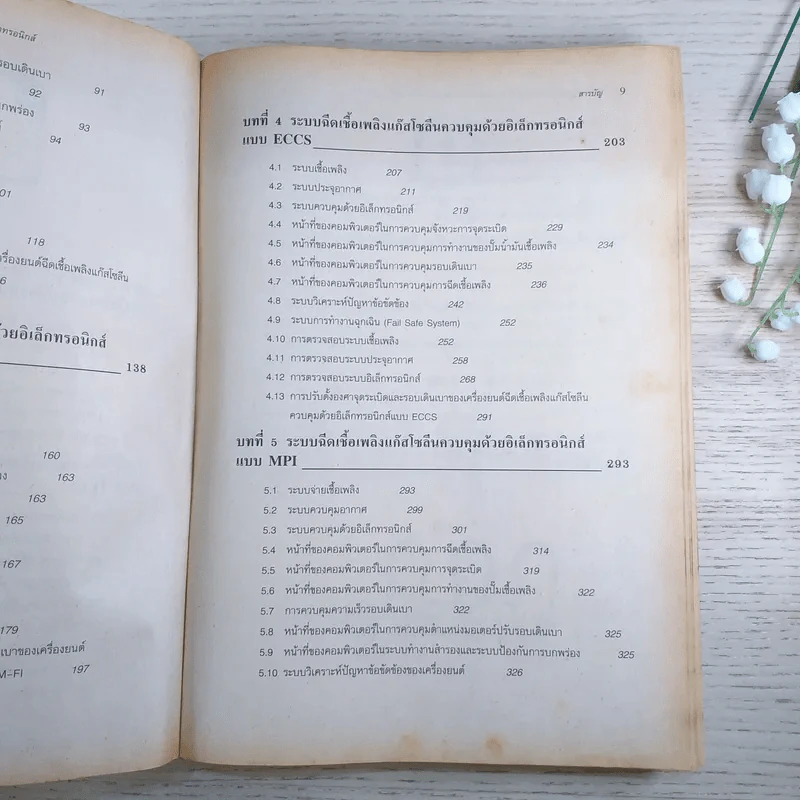 รอบเดินเบา 91
92
93
94
101
118
เครื่องยนต์ฉีดเชื้อเพลิงแก๊สโซลีน
6
ด้วยอิเล็กทรอนิกส์
138
160
163
163
165
167
179
เบาของเครื่องยนต์
M-FI 197
สารบัญ 9
บทที่ 4 ระบบฉีดเชื้อเพลิงแก๊สโซลีนควบคุมด้วยอิเล็กทรอนิกส์
แบบ ECCS 203
4.1 ระบบเชื้อเพลิง 207
4.2 ระบบประจุอากาศ 211
4.3 ระบบควบคุมด้วยอิเล็กทรอนิกส์ 219
4.4 หน้าที่ของคอมพิวเตอร์ในการควบคุมจังหวะการจุดระเบิด 229
4.5 หน้าที่ของคอมพิวเตอร์ในการควบคุมการทำงานของปั๊มน้ำมันเชื้อเพลิง 234
4.6 หน้าที่ของคอมพิวเตอร์ในการควบคุมรอบเดินเบา 235
4.7 หน้าที่ของคอมพิวเตอร์ในการควบคุมการฉีดเชื้อเพลิง 236
4.8 ระบบวิเคราะห์ปัญหาข้อขัดข้อง 242
4.9 ระบบการทำงานฉุกเฉิน (Fail Safe System) 252
4.10 การตรวจสอบระบบเชื้อเพลิง 252
4.11 การตรวจสอบระบบประจุอากาศ 258
4.12 การตรวจสอบระบบอิเล็กทรอนิกส์ 268
4.13 การปรับตั้งองศาจุดระเบิดและรอบเดินเบาของเครื่องยนต์ฉีดเชื้อเพลิงแก๊สโซลีน
ควบคุมด้วยอิเล็กทรอนิกส์แบบ ECCS 291
บทที่ 5 ระบบฉีดเชื้อเพลิงแก๊สโซลีนควบคุมด้วยอิเล็กทรอนิกส์
แบบ MPI 293
5.1 ระบบจ่ายเชื้อเพลิง 293
5.2 ระบบควบคุมอากาศ 299
5.3 ระบบควบคุมด้วยอิเล็กทรอนิกส์ 301
5.4 หน้าที่ของคอมพิวเตอร์ในการควบคุมการฉีดเชื้อเพลิง 314
5.5 หน้าที่ของคอมพิวเตอร์ในการควบคุมการจุดระเบิด 319
5.6 หน้าที่ของคอมพิวเตอร์ในการควบคุมการทำงานของปั๊มเชื้อเพลิง 322
5.7 การควบคุมความเร็วรอบเดินเบา 322
5.8 หน้าที่ของคอมพิวเตอร์ในการควบคุมตำแหน่งมอเตอร์ปรับรอบเดินเบา 325
5.9 หน้าที่ของคอมพิวเตอร์ในระบบทำงานสำรองและระบบป้องกันการบกพร่อง 325
5.10 ระบบวิเคราะห์ปัญหาข้อขัดข้องของเครื่องยนต์ 326